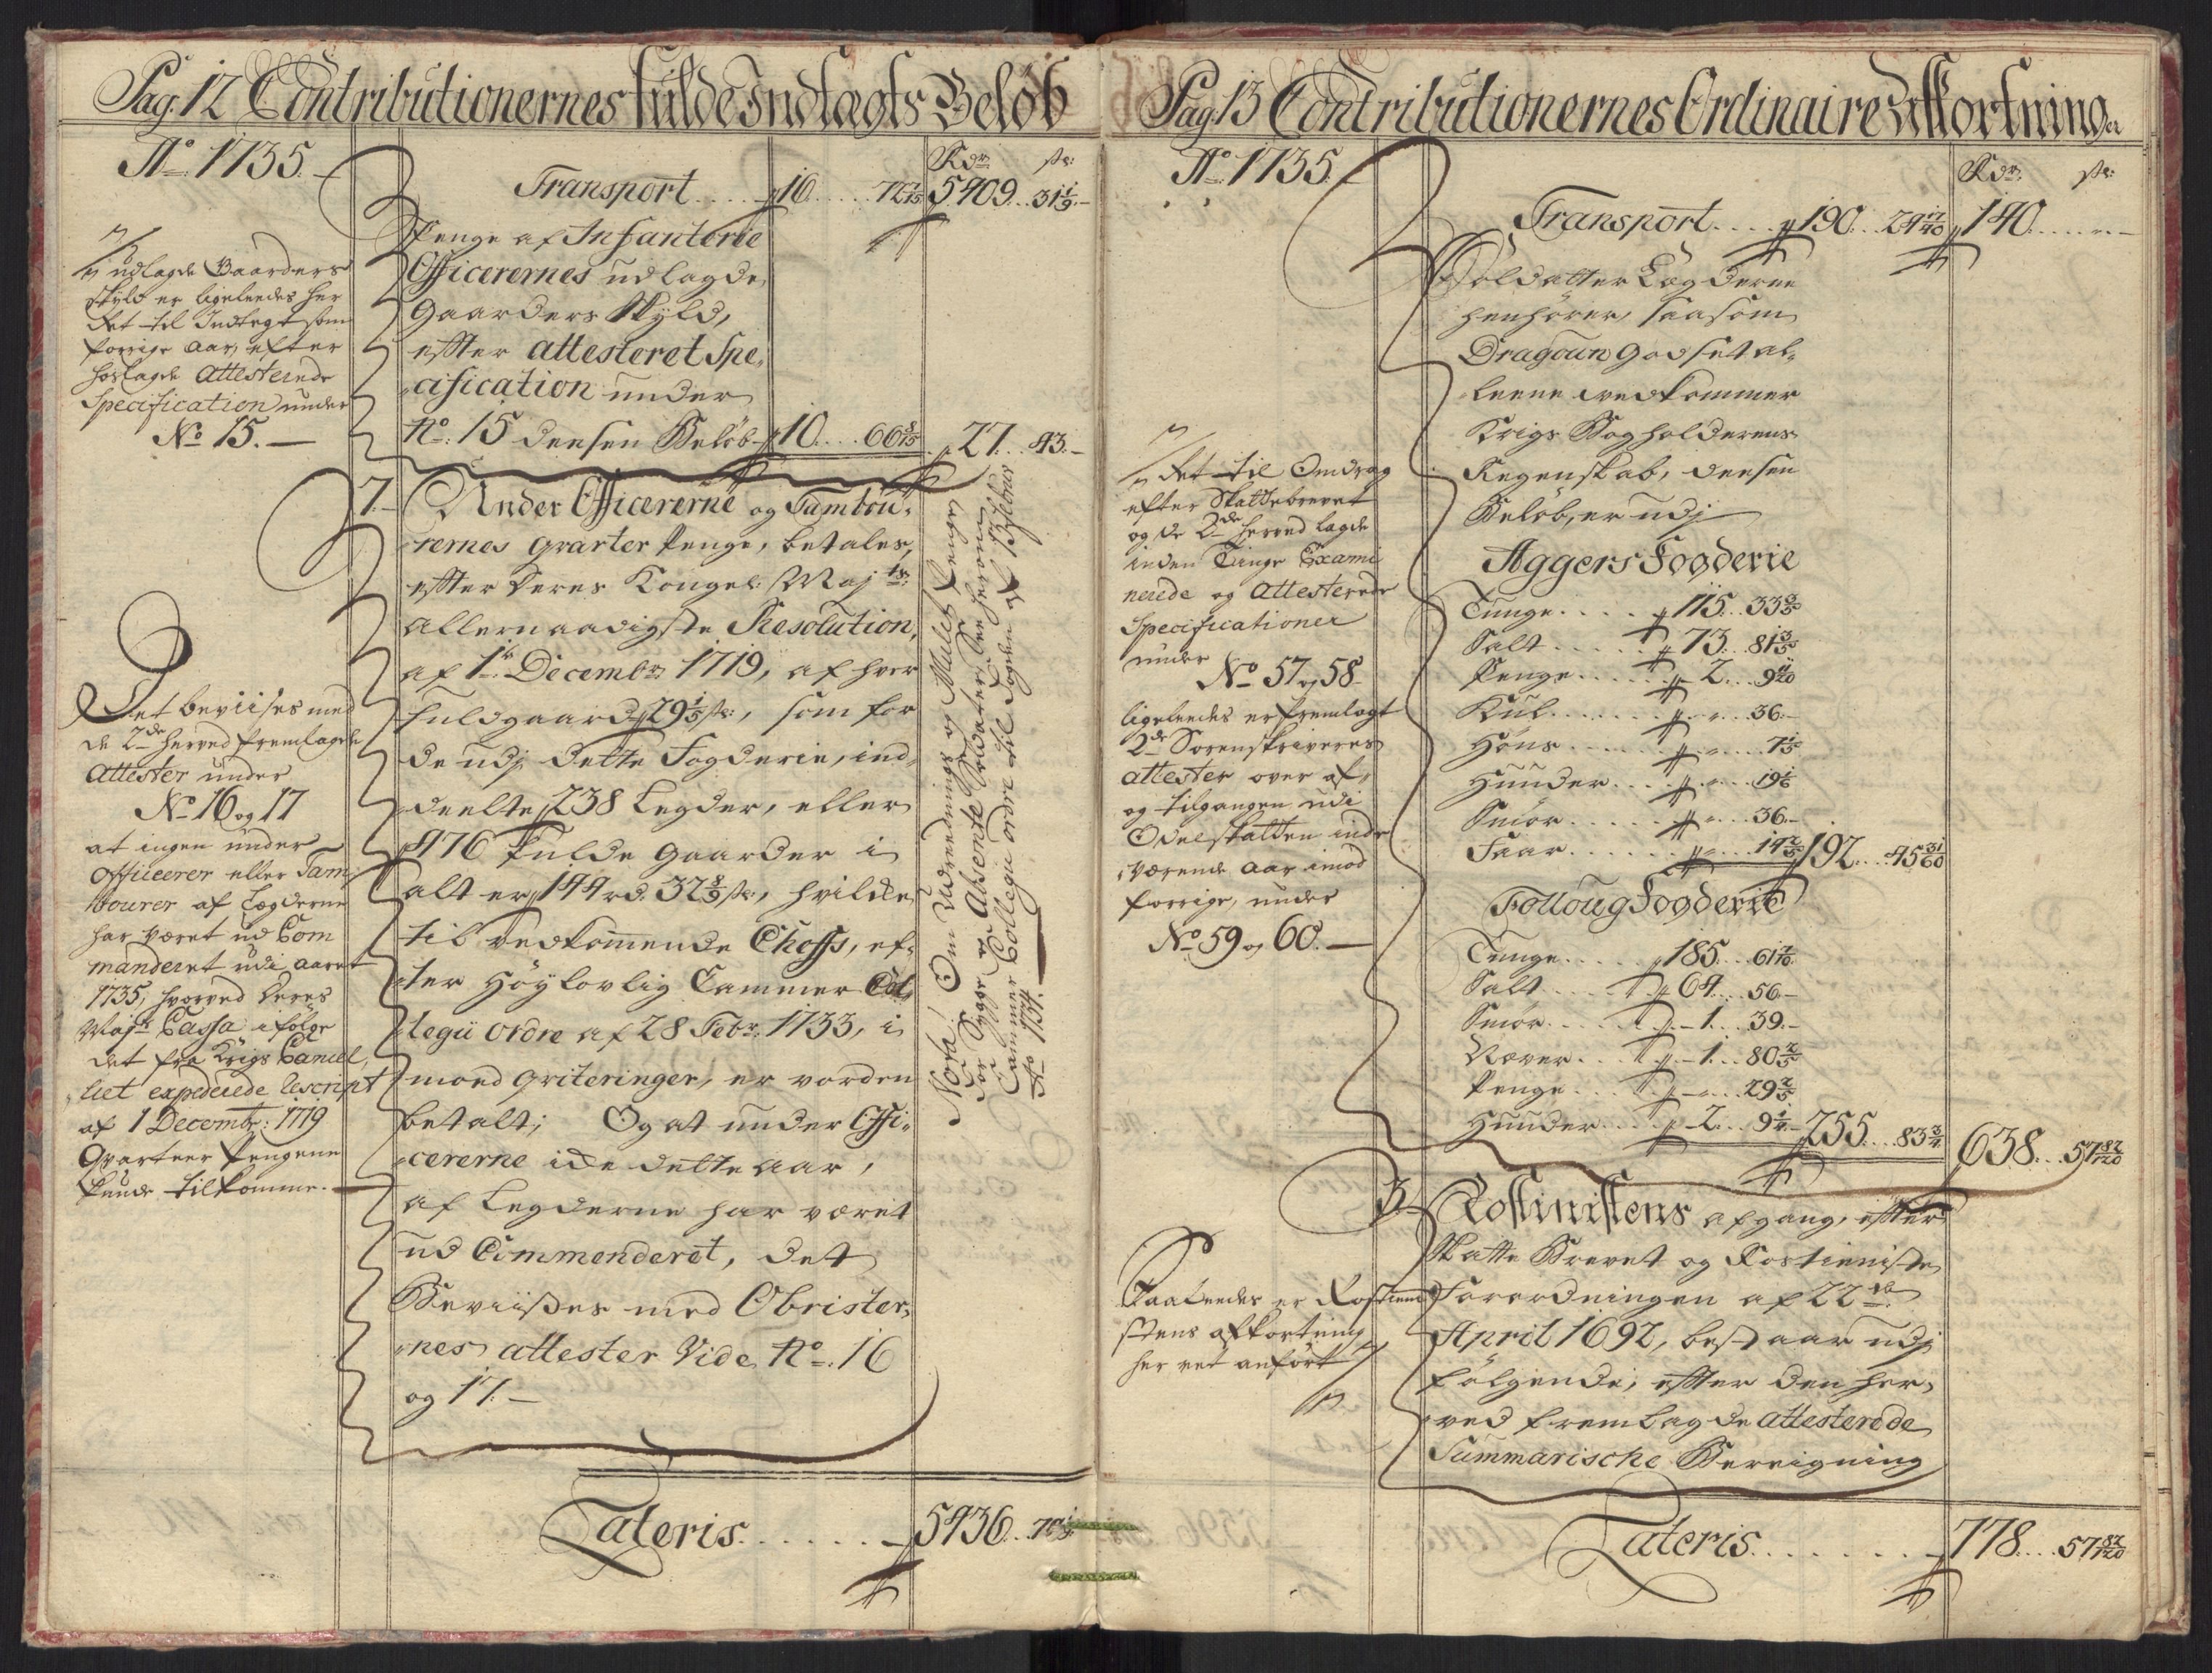 Pag. 12 Contributionernes fulde Indtægts Beløb
Ao. 1735.
Rdr. sk:
Transport . . . . 16 . . . . 72 7/15 5409 . . 31 1/9
Penge af Infanterie
Officerernes udlagde
Gaarders Skyld,
effter attesteret Spe-
cification under
No. 15 densen Beløb 10 . . . . 66 8/15 27 . . 43.
udlagde Gaarders
Skyld er ligeledes her
ført til Indtægt som
forrige Aar, efter
hoslagde attesterede
Specification under
No 15.
7. Under Officererne og Tambou-
rernes qvarter Penge, betales,
effter Deres Kongel: Maj ts:
allernaadigste Resolution,
af 1te Decembr 1719, af hver
fuldgaard 29 1/5 sk:, som for
de udj dette Fogderie, ind-
deelte 238 Legder, eller
476 fulde Gaarder i
alt er 144 rd. 32 8/9 sk:, hvilke
til vedkommende Cheffs, ef-
ter Høylovlig Cammer Col-
legii Ordre af 28 Febr: 1733, i
moed qviteringer, er vorden
betalt; Og at under Offi-
cererne icke dette aar,
af Legderne har været
ud Commenderet, det
Beviises med Obrister-
nes attester Vide No. 16
og 17.
Det beviises med
de 2de herved fremlagde
Attester under
No 16 og 17
at ingen under
Officerer eller Tam-
bourer af Lægderne
har været ud Com
manderet udi Aaret
1735, hvorved Deres
Mayts Cassa ifølge
det fra Krigs Cancel-
liet expederede Rescript
af 1 Decembr: 1719
Qvarteer Pengene
kunde tilkomme.
Nota! Om Udreednings og Mulct Penge
for Syge og Absente Soldater, See herom
Cammer Collegii ordre til Fogden af 13 Febr
Ao 1734.
Lateris . . . . . . 5436 . . 74 1/9
Pag 13 Contributionernes Ordinaire Afkortninger
Ao. 1735.
Rdr. sk:
Transport . . . . 190 . . 24 17/40 140 . . . .
Soldatter Lægderne
henhører, saasom
Dragoun Godset al-
leene vedkommer
Krigs Bogholderens
Regenskab, densen
Beløb, er udj
Aggers Fogderie
Tunge . . . . 115 . . 33 3/5
Salt . . . . 73 . . 81 3/5
Penge . . . . 2 . . 9 9/20
Kul . . . . 36.
Høns . . . . 7 1/5
Hunder . . . . 19 1/5
Smør . . . . 36.
Faar . . . . 14 2/5 192 . . 45 31/60
Folloug Fogderie
Tunge . . . . 185 . . 61 7/10
Salt . . . . 64 . . 56.
Smør . . . . 1 . . 39.
Næver . . . . 1 . . 80 2/5
Penge . . . . 29 2/5
Hunder . . . . 2 . . 9 1/4 255 . . 83 3/4 638 . . 57 82/120
ført til Omdrag
efter Skattebrevet
og de 2de herved lagde
inden Tinge Exami
nerede og Attesterede
Specificationer
under
No 57 og 58
ligeleedes er fremlagt
2de Sorenskriveres
attester over af-
og tilgangen udi
Odelskatten inde
værende Aar imod
forrige, under
No 59 og 60.
3. Rostinistens afgang, effter
Skatte Brevet og Rostieniste
Forordningen af 22de
April 1692, bestaar udj
følgende, effter den her-
ved fremlagde attesterede
Summarische Beregning
Saaleedes er Rostieni
stens afkortning
her ret anført
Lateris . . . . . . 778 . . . 57 82/120